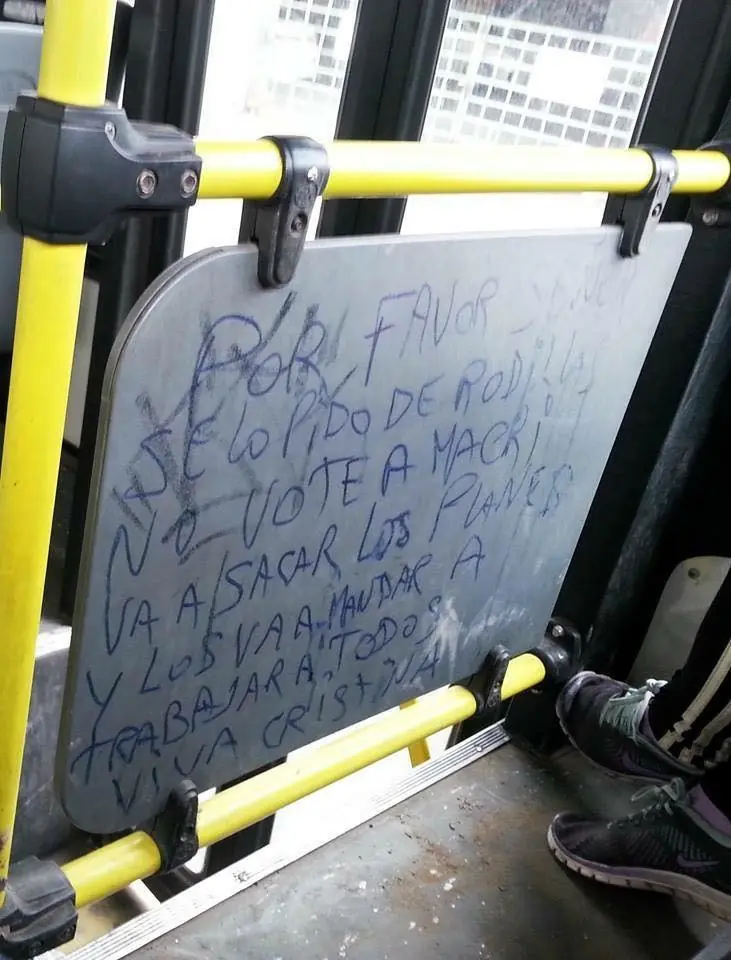 POR FAVOR
SE LO PIDO DE RODILLAS
NO VOTE A MACRI
VA A SACAR LOS PLANES
Y LOS VA A MANDAR A
TRABAJAR A TODOS
VIVA CRISTINA